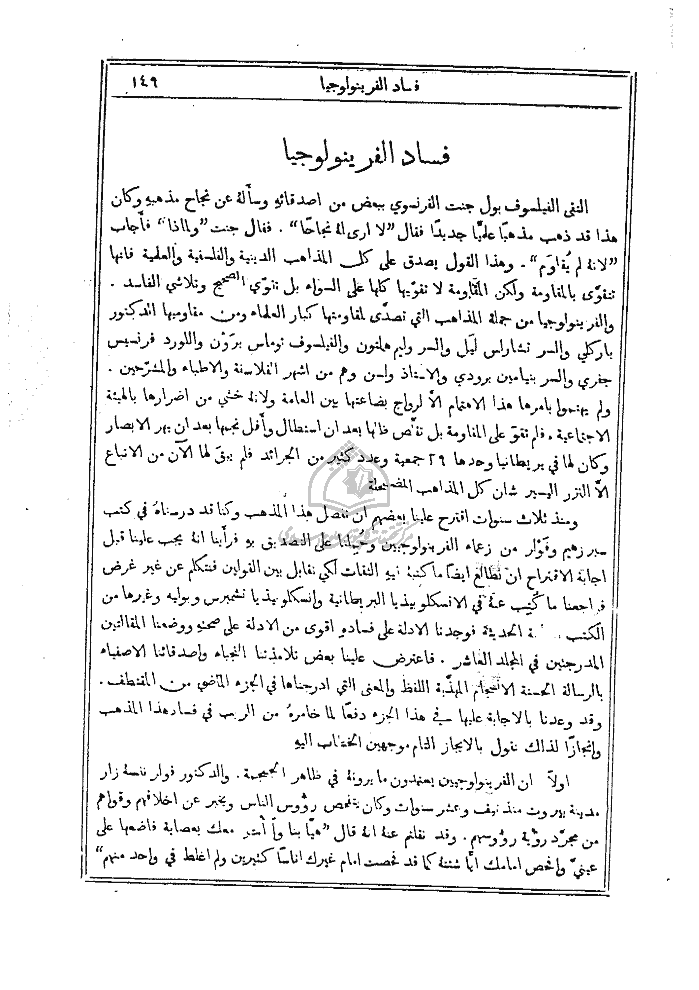 فساد الفرينولوجيا ١٤٩
فساد الفرينولوجيا
التقى الفيلسوف بول جنت الفرنسوي ببعض من اصدقائهِ وسألهُ عن نجاح مذهبهِ وكان
هذا قد ذهب مذهبًا علميًّا جديدًا فقال "لا ارى لهُ نجاحًا" . فقال جنت "ولماذا" فأجاب
"لانهُ لم يُقاوَم" . وهذا القول يصدق على كل المذاهب الدينية والفلسفية والعلمية فانها
تتقوَّى بالمقاومة ولكن المقاومة لا تقوّيها كلها على السواء بل تقوّي الصحيح وتلاشي الفاسد .
والفرينولوجيا من جملة المذاهب التي تصدَّى لمقاومتها كبار العلماء ومن مقاوميها الدكتور
باركلي والسر تشارلس لَيل والسر وليم هملتون والفيلسوف توماس برَوْن واللورد فرنسيس
جفري والسر بنيامين برودي والاستاذ ولسن وهم من اشهر الفلاسفة والاطباء والمشرّحين .
ولم يهتموا بامرها هذا الاهتمام الاَّ لرواج بضاعتها بين العامة ولانهُ خشي من اضرارها بالهيئة
الاجتماعية . فلم تقوَ على المقاومة بل تقلَّص ظلها بعد ان استطال وأفل نجمها بعد ان بهر الابصار
وكان لها في بريطانيا وحدها ٢٩ جمعية وعدد كثير من الجرائد فلم يبقَ لها الآن من الاتباع
الاَّ النزر اليسير شان كل المذاهب المضمحلة
ومنذ ثلاث سنوات اقترح علينا بعضهم ان نفصل هذا المذهب وكنا قد درسناهُ في كتب
سبرزهيم وفَوْلر من زعماء الفرينولوجيين وحملنا على التصديق بهِ فرأينا انهُ يجب علينا قبل
اجابة الاقتراح ان نطالع ايضًا ما كتبهُ فيهِ الثقات لكي نقابل بين القولين فنتكلم عن غير غرض
فراجعنا ما كُتِب عنهُ في الانسكلوبيذيا البريطانية وانسكلوبيذيا تشمبرس وبوليه وغيرها من
الكتب الحديثة فوجدنا الادلة على فسادهِ اقوى من الادلة على صحتهِ ووضعنا المقالتين
المدرجتين في المجلد العاشر . فاعترض علينا بعض تلامذتنا النجباء واصدقائنا الاصفياء
بالرسالة الحسنة الانسجام المهذَّبة اللفظ والمعنى التي ادرجناها في الجزء الماضي من المقتطف .
وقد وعدنا بالاجابة عليها في هذا الجزء دفعًا لما خامرهُ من الريب في فساد هذا المذهب
وانجازًا لذلك نقول بالايجاز التام موجهين الخطاب اليهِ
اولًا ان الفرينولوجيين يعتمدون ما يرونهُ في ظاهر الجمجمة . والدكتور فولر نفسهُ زار
مدينة بيروت منذ نيف وعشر سنوات وكان يتفحص رؤوس الناس ويخبر عن اخلاقهم وقواهم
من مجرَّد رؤية رؤوسهم . وقد نقلتم عنهُ انهُ قال "هيَّا بنا معك بعصابة فاضعها على
عينيَّ وافحص امامك ايًّا شئتهُ كما قد فحصت امام غيرك اناسًا كثيرين ولم اغلط في واحد منهم"